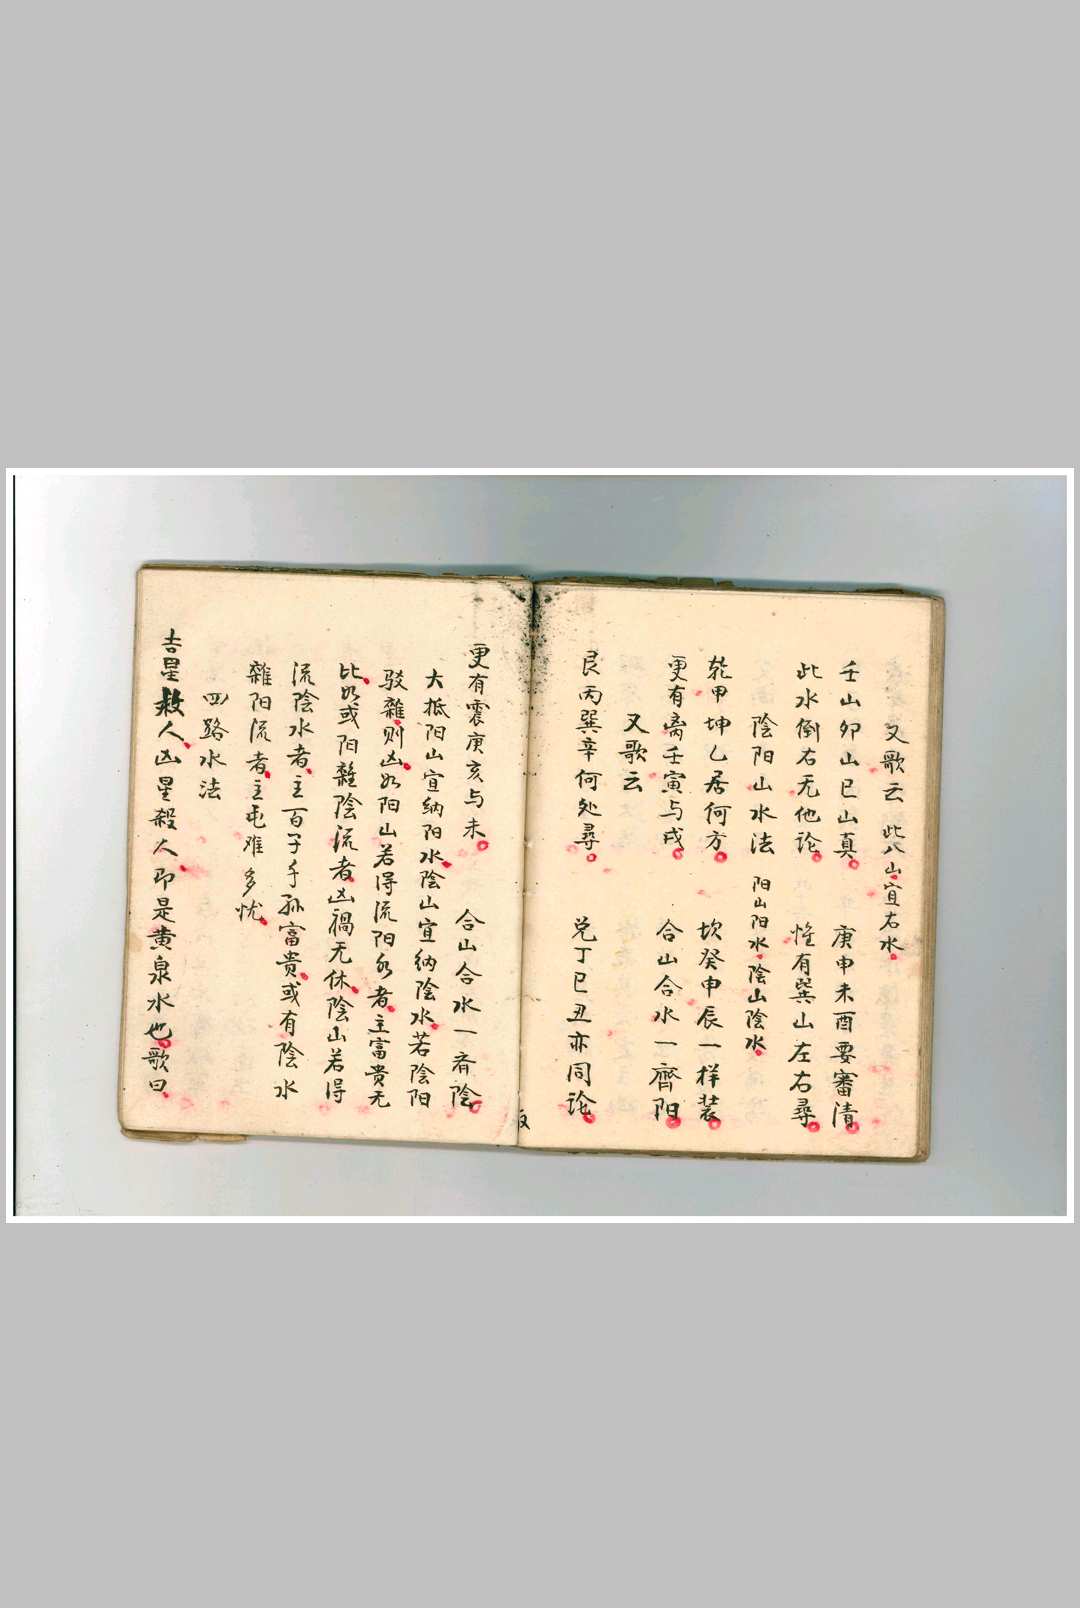 又歌云 此八山宜右水
壬山卯山巳山真 庚申未酉要審清
此水倒右无他论 惟有巽山左右尋
陰阳山水法 阳山阳水陰山陰水
乾甲坤乙居何方 坎癸申辰一样装
更有离壬寅与戌 合山合水一齊阳
又歌云
艮丙巽辛何处尋 兑丁巳丑亦同论
更有震庚亥与未 合山合水一斉陰
大抵阳山宜纳阳水陰山宜纳陰水若陰阳
驳雜则凶如阳山若得流阳水者主富贵无
比如或阳雜陰流者凶禍无休陰山若得
流陰水者主百子千孙富贵或有陰水
雜阳流者主屯难多忧
四路水法
吉星救人凶星殺人即是黄泉水也歌曰